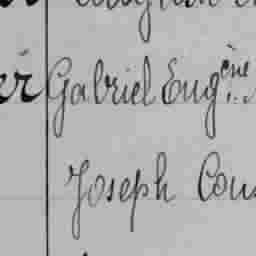 er Gabriel Eugène
Joseph Cou